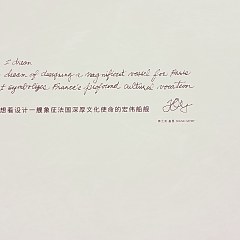 I dream
dream of designing a magnificent vessel for Paris
t symbolizes France's profound cultural vocation
想着设计一艘象征法国深厚文化使命的宏伟船舰